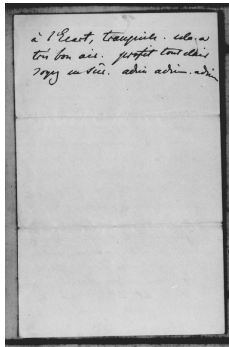 à l'Ecart, tranquille. cela a
très bon air. profit tout clair
soyez en sûr. adieu adieu. adieu